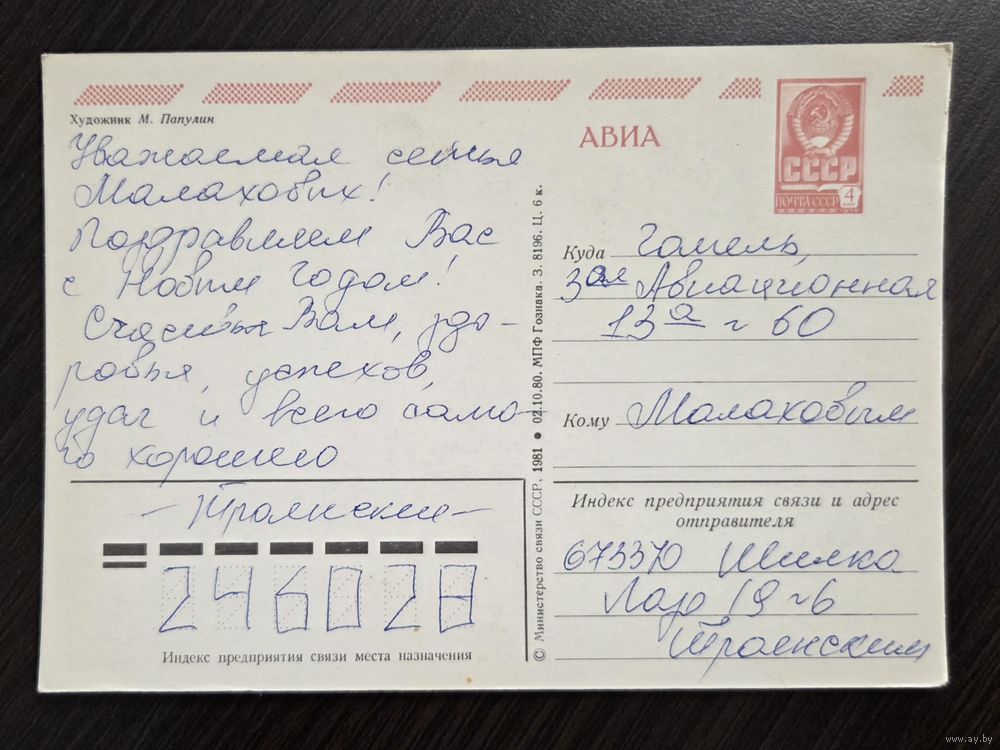 Художник М. Папулин
Уважаемая семья
Малаховых!
Поздравляем Вас
с Новым Годом!
Счастья Вам, здо-
ровья, успехов,
удач и всего само-
го хорошего
- Троянские -
246028
Индекс предприятия связи места назначения
© Министерство связи СССР, 1981 ● 02.10.80. МПФ Гознака. З. 8196. Ц. 6 к.
АВИА
СССР
ПОЧТА СССР 4
Куда Гомель,
3ая Авиационная
13а - 60
Кому Малаховым
Индекс предприятия связи и адрес
отправителя
673370 Шилка
Лазо 19-6
Троянским
www.ay.by